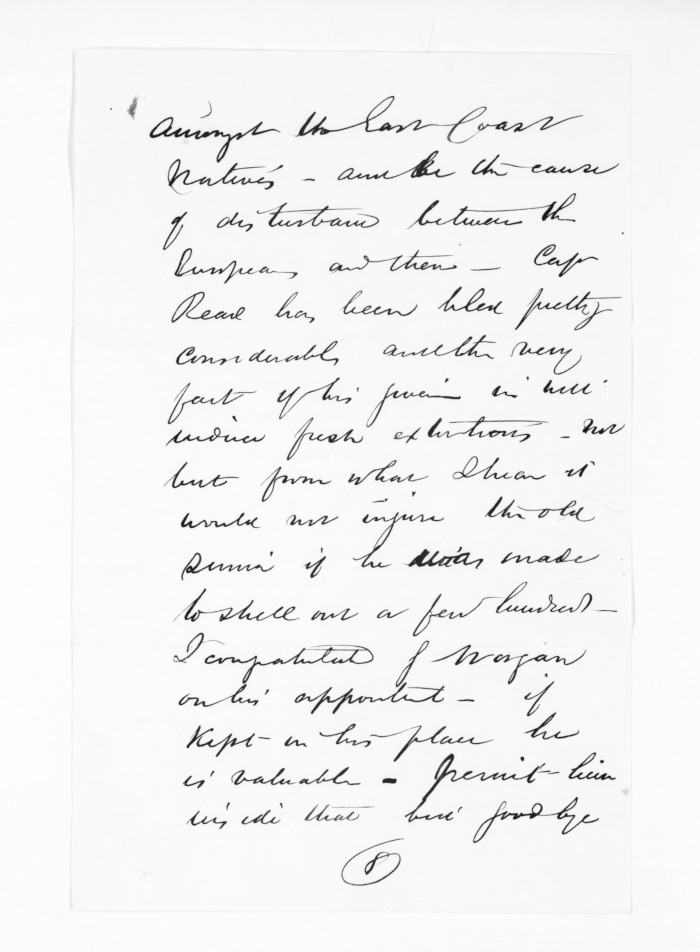 amongst the East Coast
Natives - and be the cause
of disturbance between the
Europeans and them - Capt
Read has been bled pretty
considerably and the very
fact of his giving in will
induce fresh extortions - not
but from what I hear it
would not injure the old
if he was made
to shell out a few hundred -
I congratulated J Morgan
on his appointmt - if
kept in his place he
is valuable - permit him
inside that but goodbye
8